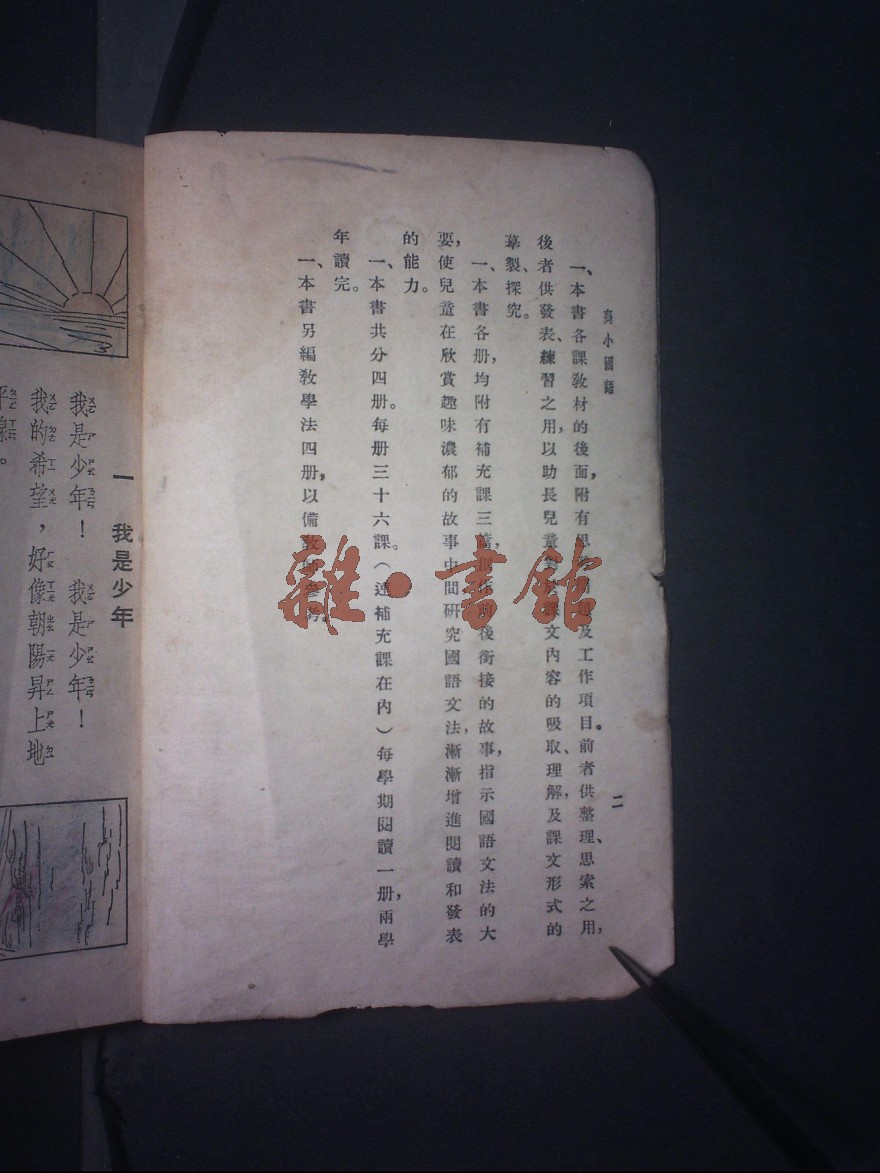 高小國語
二
一、本書各課教材的後面，附有思 及工作項目。前者供整理、思索之用，
後者供發表、練習之用，以助長兒童對 課文內容的吸取、理解，及課文形式的
摹製、探究。
一、本書各册，均附有補充課三 前後銜接的故事，指示國語文法的大
要，使兒童在欣賞趣味濃郁的故事中間研究國語文法，漸漸增進閱讀和發表
的能力。
一、本書共分四册。每册三十六課。（連補充課在內）每學期閱讀一册，兩學
年讀完。
一、本書另編教學法四册，以備教 參考。
雜·書館
一 我是少年
我是少年！ 我是少年！
我的希望，好像朝陽昇上地
平線。